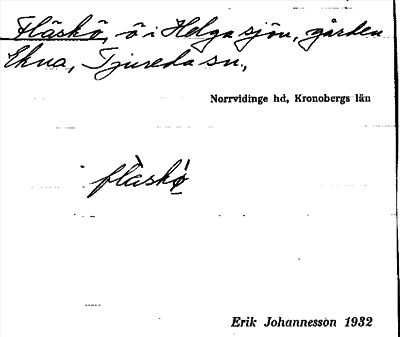 Fläskö, ö i Helgasjön, gården
Ekna, Tjureda sn.,
Norrvidinge hd, Kronobergs län
flàskø̀
Erik Johannesson 1932